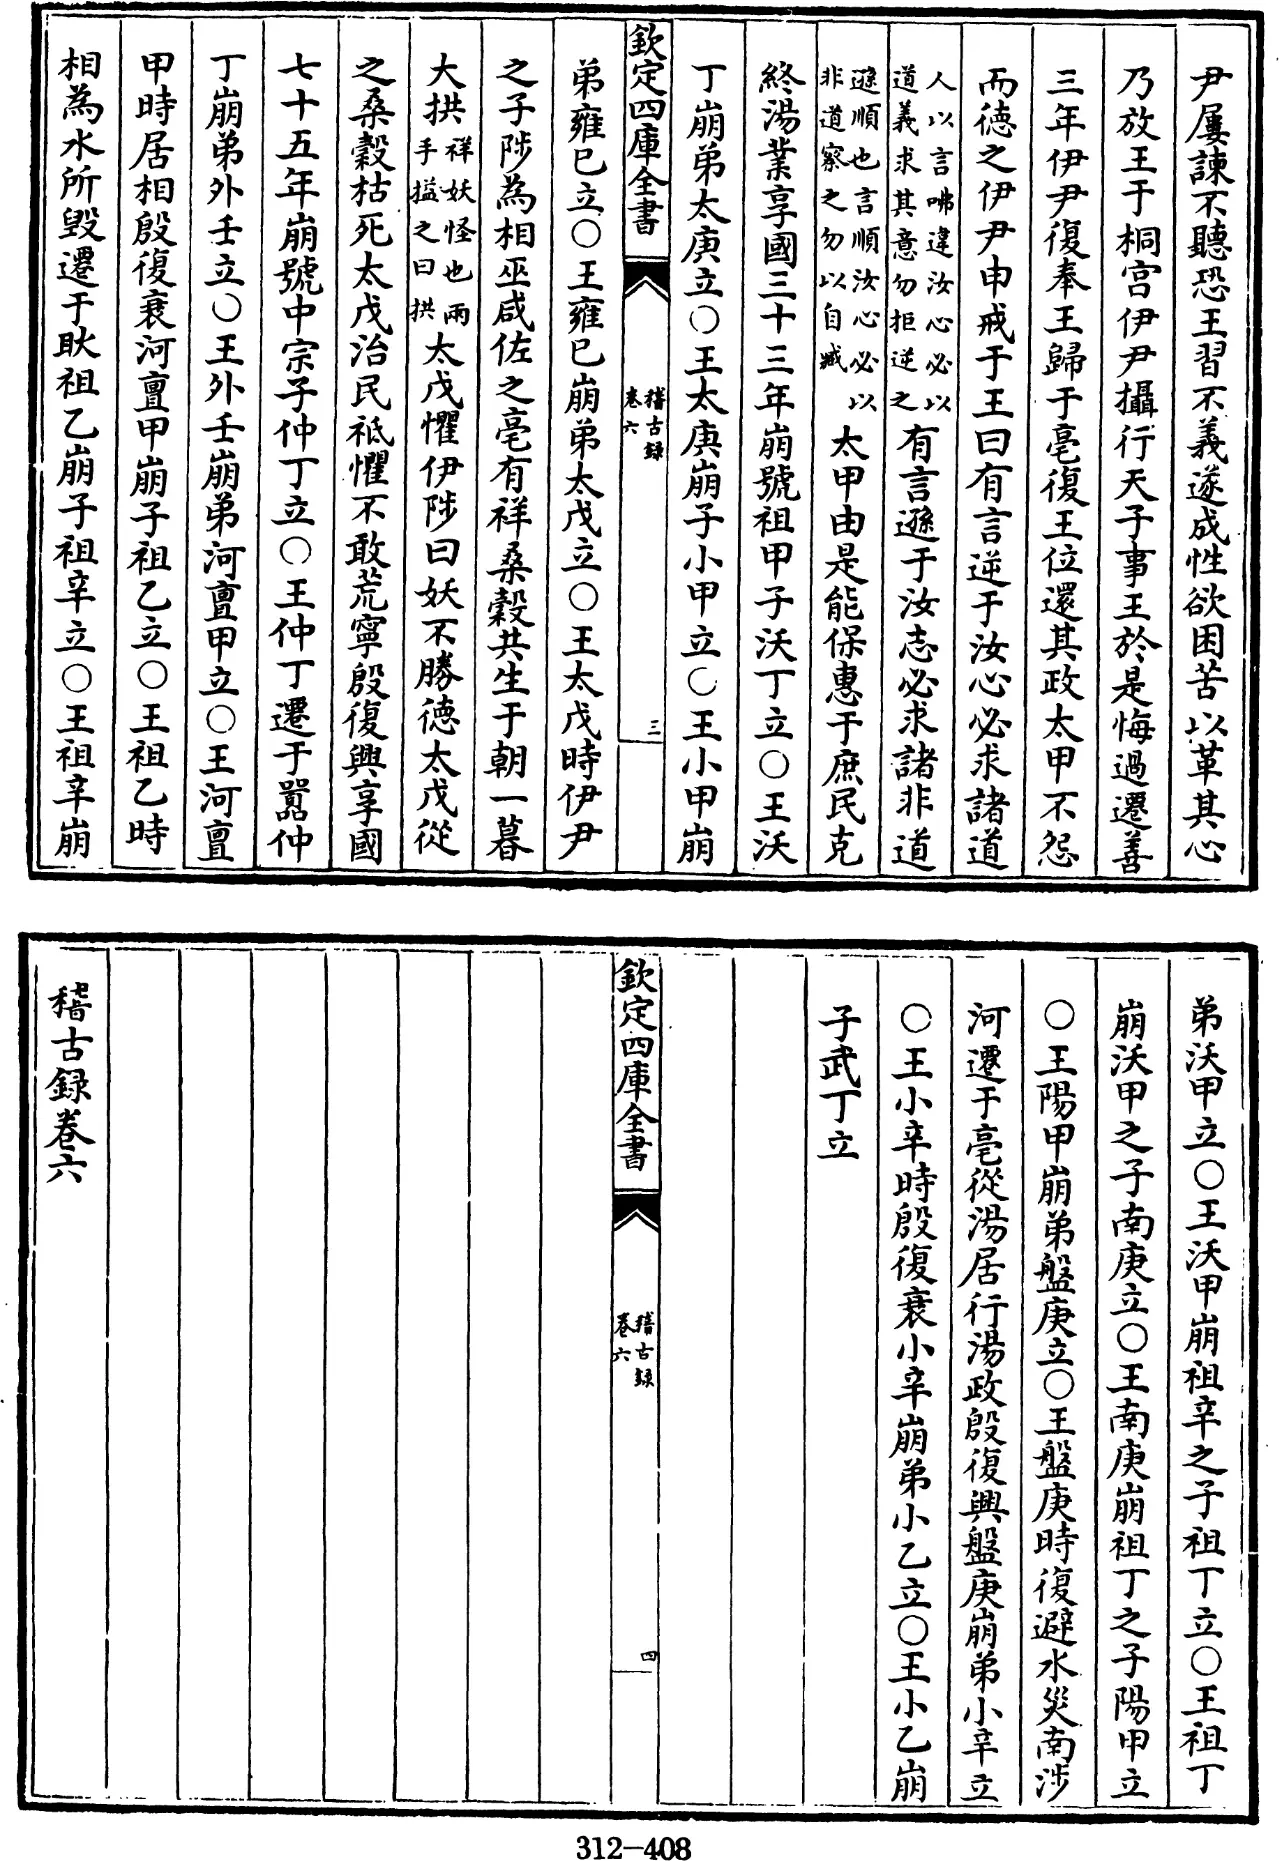 尹屢諫不聽恐王習不義遂成性欲困苦以革其心
乃放王于桐宫伊尹攝行天子事王於是悔過遷善
三年伊尹復奉王歸于亳復王位還其政太甲不怨
而徳之伊尹申戒于王曰有言逆于汝心必求諸道
人以言咈違汝心必以
道義求其意勿拒逆之
有言遜于汝志必求諸非道
遜順也言順汝心必以
非道察之勿以自臧
太甲由是能保惠于庶民克
終湯業享國三十三年崩號祖甲子沃丁立○王沃
丁崩弟太庚立○王太庚崩子小甲立○王小甲崩
欽定四庫全書
稽古録
卷六
三
弟雍巳立○王雍巳崩弟太戊立○王太戊時伊尹
之子陟為相巫咸佐之亳有祥桑榖共生于朝一暮
大拱
祥妖怪也兩
手搤之曰拱
太戊懼伊陟曰妖不勝徳太戊從
之桑榖枯死太戊治民祗懼不敢荒寧殷復興享國
七十五年崩號中宗子仲丁立○王仲丁遷于嚣仲
丁崩弟外壬立○王外壬崩弟河亶甲立○王河亶
甲時居相殷復衰河亶甲崩子祖乙立○王祖乙時
相為水所毀遷于耿祖乙崩子祖辛立○王祖辛崩
弟沃甲立○王沃甲崩祖辛之子祖丁立○王祖丁
崩沃甲之子南庚立○王南庚崩祖丁之子陽甲立
○王陽甲崩弟盤庚立○王盤庚時復避水災南涉
河遷于亳從湯居行湯政殷復興盤庚崩弟小辛立
○王小辛時殷復衰小辛崩弟小乙立○王小乙崩
子武丁立
欽定四庫全書
稽古録
卷六
四
稽古録卷六
312-408